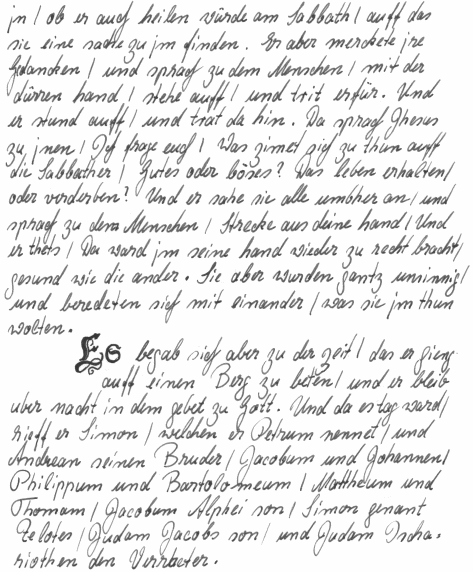 jn / ob er auch heilen würde am Sabbath / auff das
sie eine sache zu jm finden. Er aber merckete jre
gedancken / und sprach zu dem Menschen / mit der
dürren hand / stehe auff / und trit erfür. Und
er stund auff / und trat da hin. Da sprach Jhesus
zu jnen / Jch frage euch / Was zimet sich zu thun auff
die Sabbather / gutes oder böses? das leben erhalten /
oder verderben? Und er sahe sie alle umbher an / und
sprach zu dem Menschen / Strecke aus deine hand / Und
er thets / Da ward jm seine hand wieder zu recht bracht /
gesund wie die ander. Sie aber wurden gantz unsinnig /
und beredeten sich mit einander / was sie jm thun
wolten.
Es begab sich aber zu der zeit / das er gieng
auff einen Berg zu beten / und er bleib
uber nacht in dem gebet zu Gott. Und da es tag ward /
rieff er Simon / welchen er Petrum nennet / und
Andrean seinen Bruder / Jacobum und Johannen /
Philippum und Bartolomeum / Mattheum und
Thomam / Jacobum Alphei son / Simon genant
Zelotes / Judam Jacobs son / und Judam Ischa-
riothen den Verrheter.